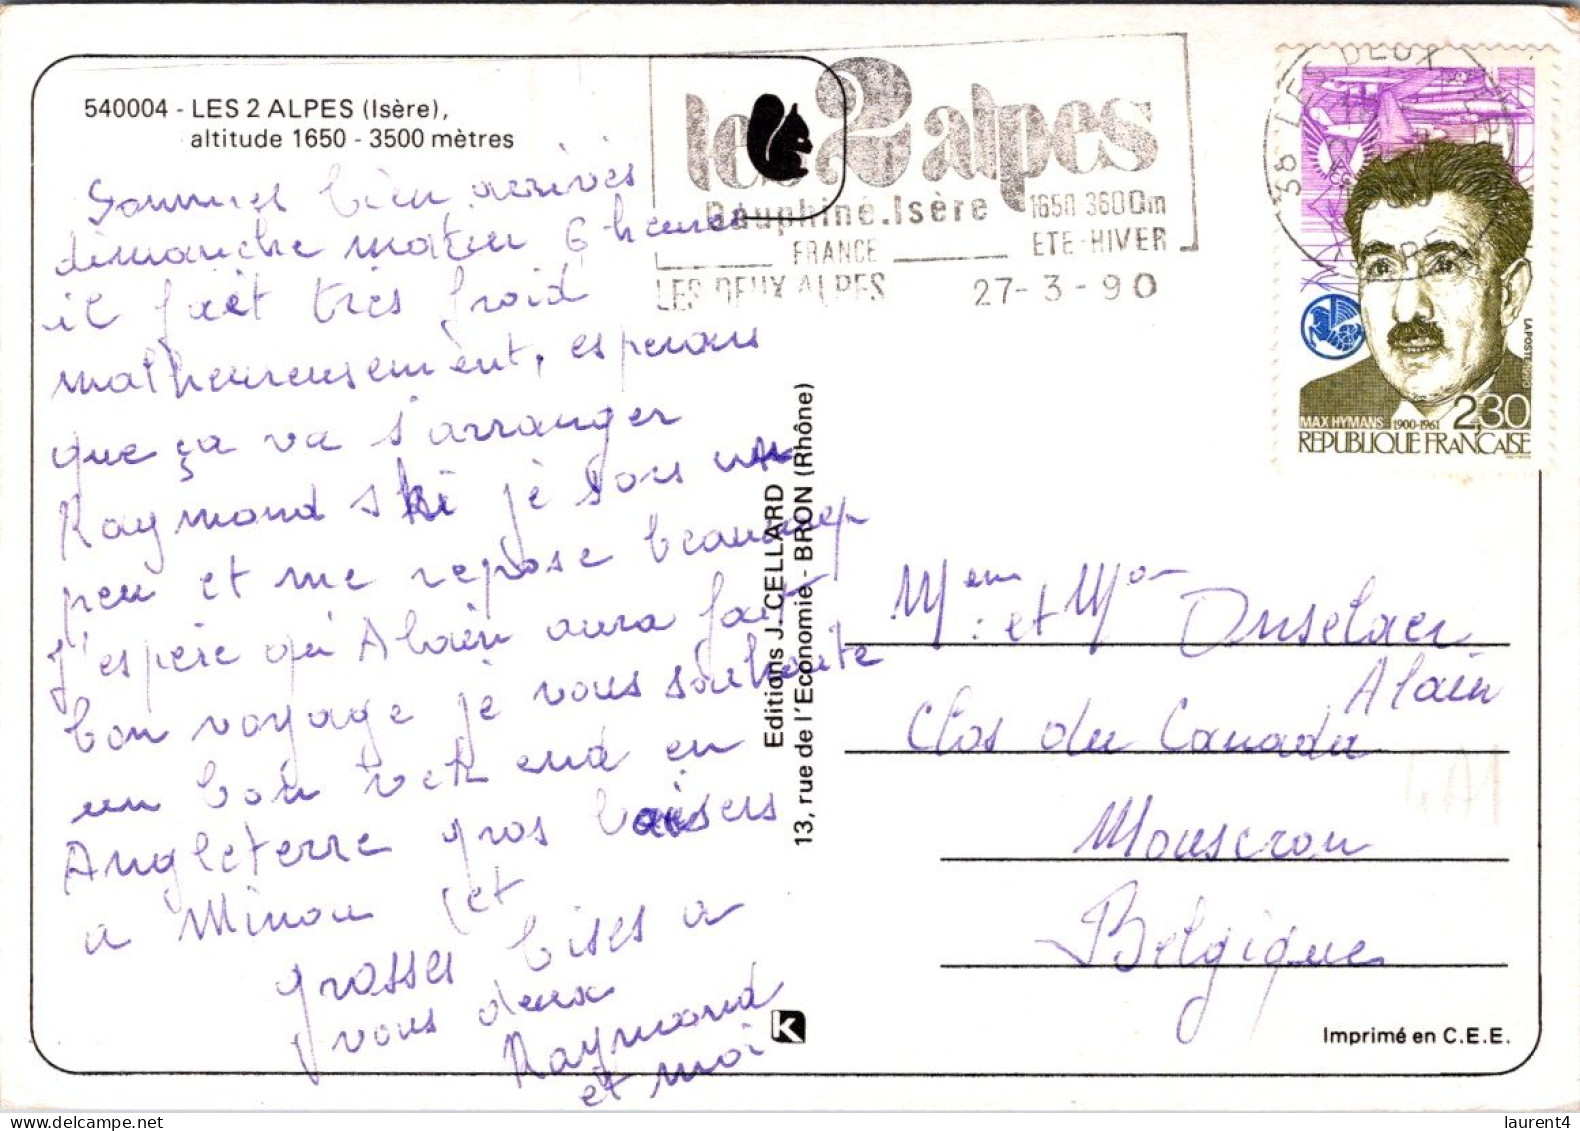 540004 - LES 2 ALPES (Isère),
altitude 1650 - 3500 mètres
Sommes bien arrivés
dimanche matin 6 heures
il fait très froid
malheureusement, esperons
que ça va s'arranger
Raymond ski je sors un
peu et me repose beaucoup
J'espère qu'Alain aura fait
bon voyage je vous souhaite
un bon wek end en
Angleterre gros baisers
a Minou et
grosses bises a
vous deux
Raymond
et moi
les 2 alpes
Dauphiné.Isère
1650-3600m
FRANCE
ETE-HIVER
LES DEUX ALPES
27-3-90
38 LES DEUX ALPES
ISERE
MAX HYMANS 1900-1961
2,30
REPUBLIQUE FRANÇAISE
LA POSTE 1990
Editions J. CELLARD
13, rue de l'Economie - BRON (Rhône)
et Onselaer
Alain
Clos du Canada
Mouscron
Belgique
K
Imprimé en C.E.E.
laurent4